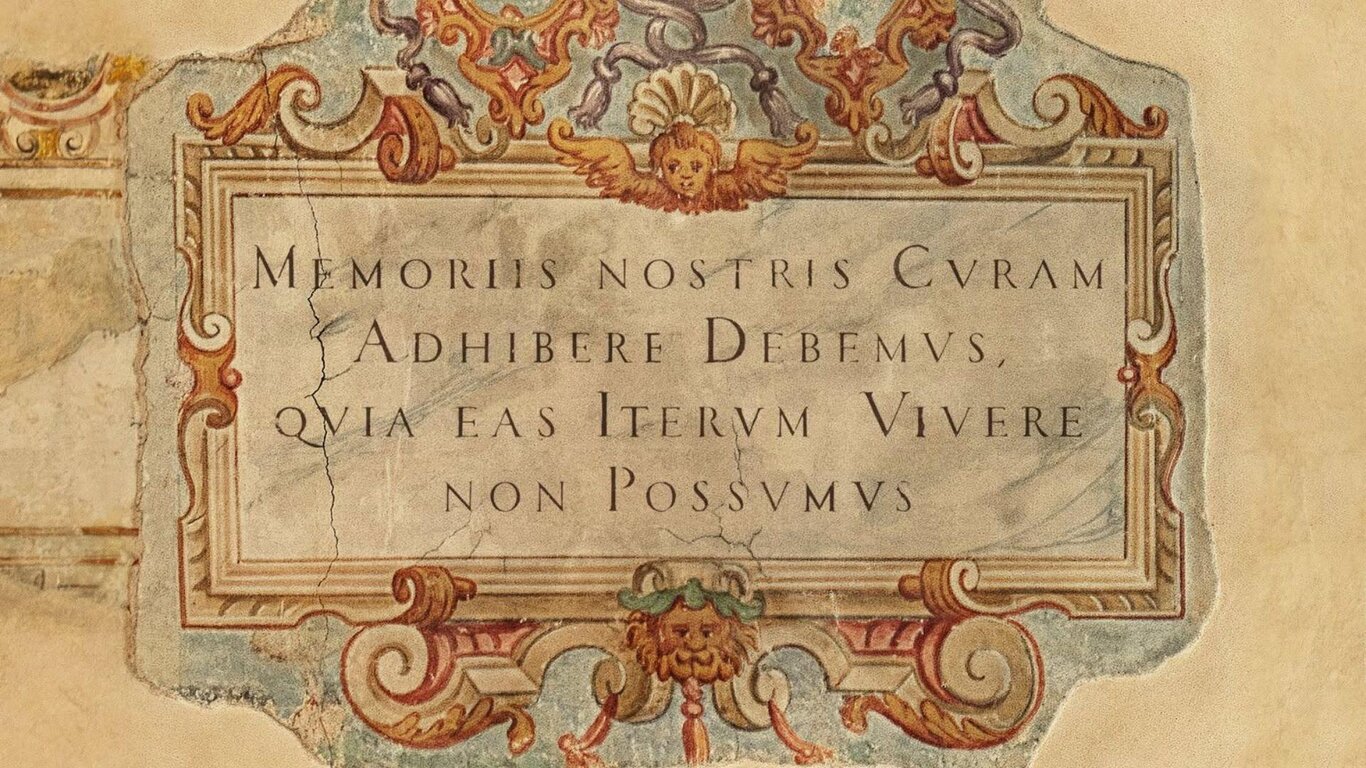 MEMORIIS NOSTRIS CVRAM
ADHIBERE DEBEMVS,
QVIA EAS ITERVM VIVERE
NON POSSVMVS